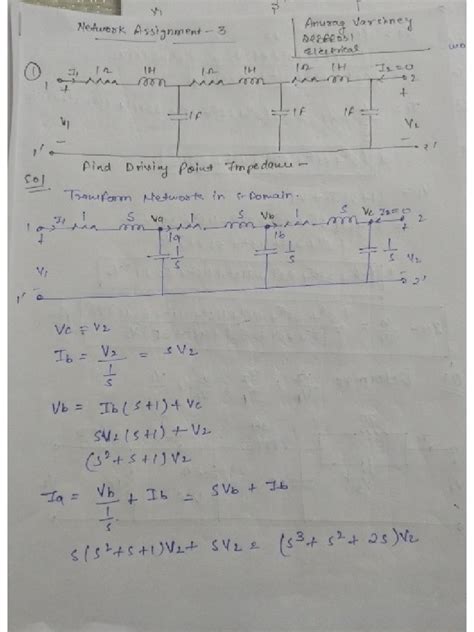 Network Assignment-3
Anurag Varshney
Electrical
① 1 I1 1Ω 1H 1Ω 1H 1Ω 1H I2=0 2
+ +
V1 1F 1F 1F V2
- -
1' 2'
Find Driving Point Impedance -
Sol
Transform Network in S-Domain.
1 I1 1 S Va 1 S Vb 1 S Vc I2=0 2
+ Ia Ib +
1/S 1/S 1/S
V1 V2
1' 2'
Vc = V2
Ib = V2/(1/S) = SV2
Vb = Ib(S+1) + Vc
SV2(S+1) + V2
(S²+S+1)V2
Ia = Vb/(1/S) + Ib = SVb + Ib
S(S²+S+1)V2 + SV2 = (S³+S²+2S)V2